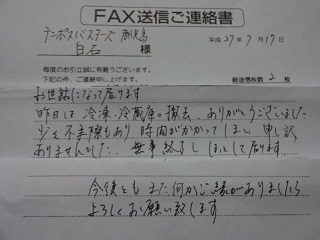 FAX送信ご連絡書
平成 27年 7月 17日
テンポスバスターズ 鹿児島
白石 様
毎度のお引立誠に有難うございます。
下記の件、ご連絡申し上げます。
総送信枚数 2 枚
お世話になって居ります
昨日は 冷凍・冷蔵庫の撤去、ありがとうございました
少々不手際もあり 時間がかかってしまい 申し訳
ありませんでした。無事終了しほっとして居ります。
今後とも また何かご縁がありましたら
よろしくお願い致します